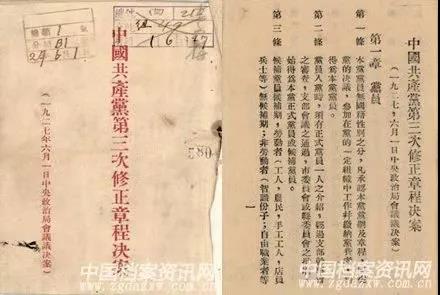 中國共產黨第三次修正章程决案
(一九二七年六月一日中央政治局會議議决案)
580
中國共產黨第三次修正章程决案
(一九二七,六月一日中央政治局會議議决案)
第一章 黨員
第一條 本黨黨員無國籍性別之分,凡承認本黨黨綱及章程
黨的决議,參加在黨的一定組織中工作幷繳納黨費
得爲本黨黨員。
第二條 黨員入黨時,須有正式黨員一人之介紹,經過支部
之審查,支部會議之通過,市委員會或縣委員會之
始得爲本黨正式黨員或候補黨員。
第三條 候補黨員候補期,勞動者(工人,農民,手工工人,店員
兵士等)無候補期;非勞動者(智識份子;自由職業者等
一
中国档案资讯网
www.zgdazxw.com.cn
中国档案资讯网
www.zgdazxw.com.cn